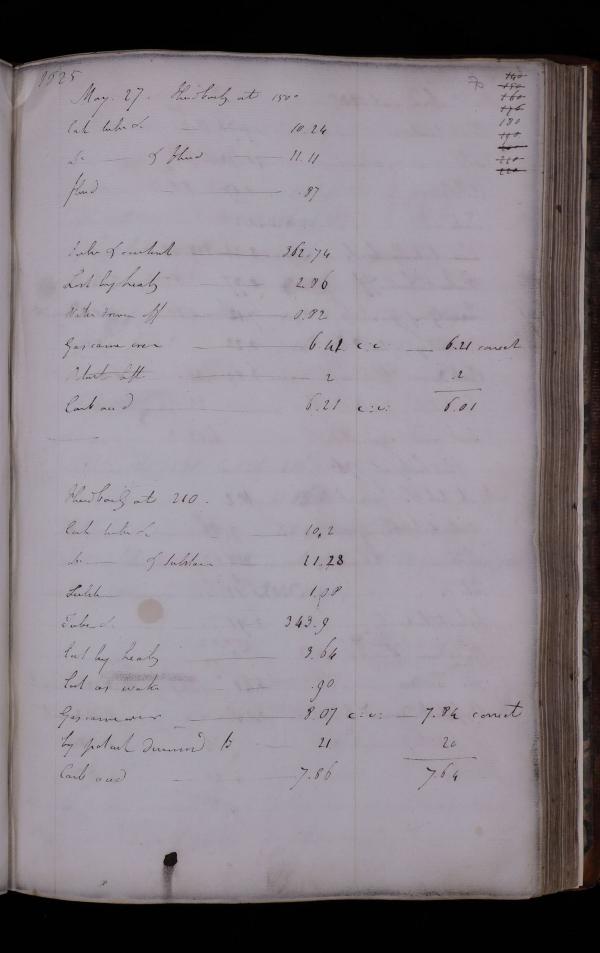 1825
140
150
160
176
180
190
220
May. 27. Fluid boils at 150°
Cork tube &c 10.24
do of fluid 11.11
fluid .87
Tube & content 362.74
Lost by heat 2.86
Water driven off 0.82
Gas came over 6.41 c:i: 6.21 correct
Potash left 2 .2
Carb acid 6.21 c:i: 6.01
Fluid boils at 210.
Cork tube &c 10.2
do of substance 11.28
1.08
Tube &c 343.9
Lost by heat 3.64
Lost as water .90
Gas came over 8.07 c:i: 7.84 correct
by potash diminished to 21 20
Carb acid 7.86 7.64